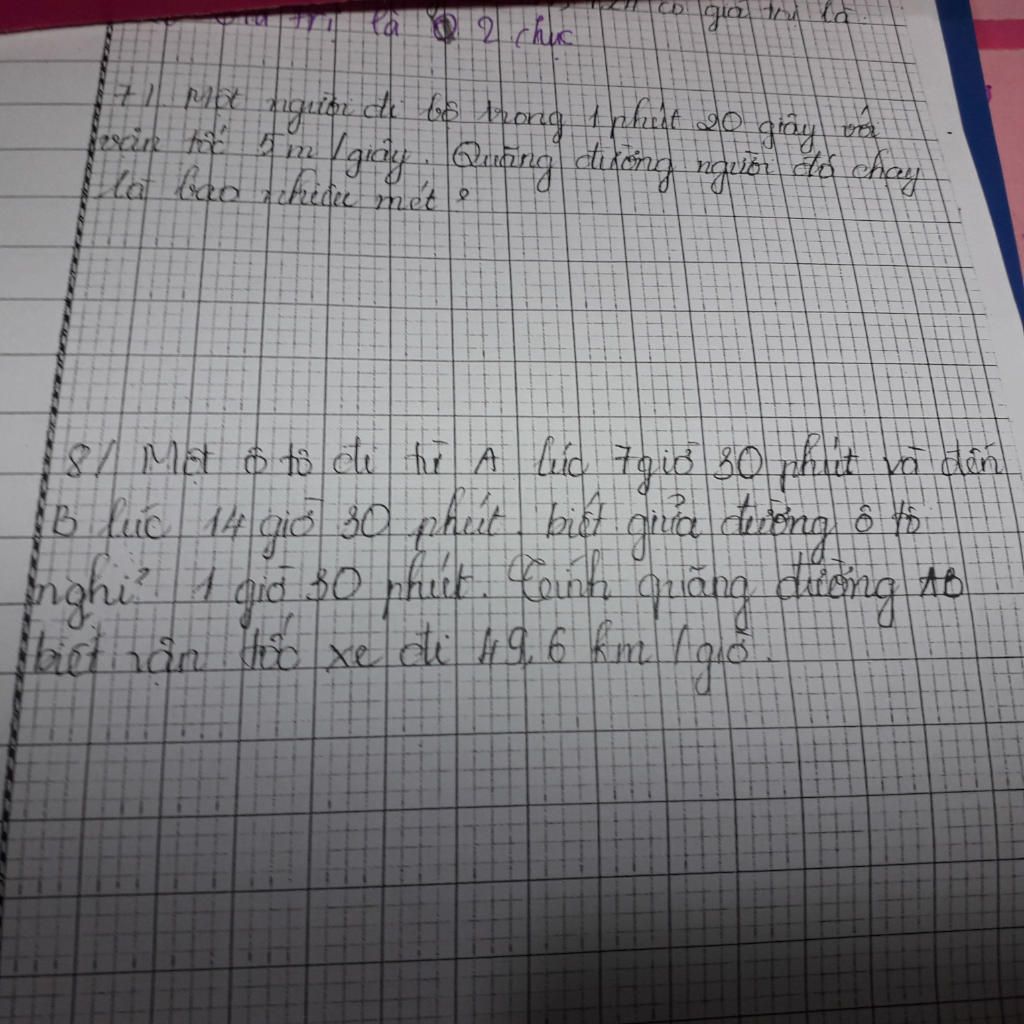 có giá trị là
giá trị là 2 chục
7/ Một người đi bộ trong 1 phút 20 giây với
vận tốc 5m/giây. Quãng đường người đó chạy
là bao nhiêu mét?
8/ Một ô tô đi từ A lúc 7 giờ 30 phút và đến
B lúc 14 giờ 30 phút, biết giữa đường ô tô
nghỉ 1 giờ 30 phút. Tính quãng đường AB
biết vận tốc xe đi 49,6 km/giờ.